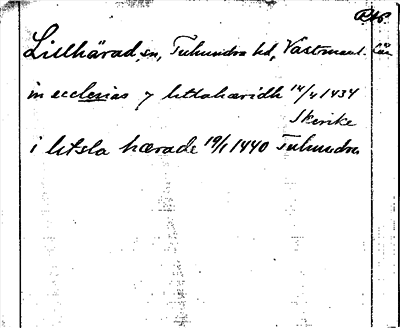 Lillhärad sn, Tuhundra hd, Västmanl. Län
in ecclesias 7 litlahæridh 14/4 1434
Skerike
i litsla hærade 19/1 1440 Tuhundra